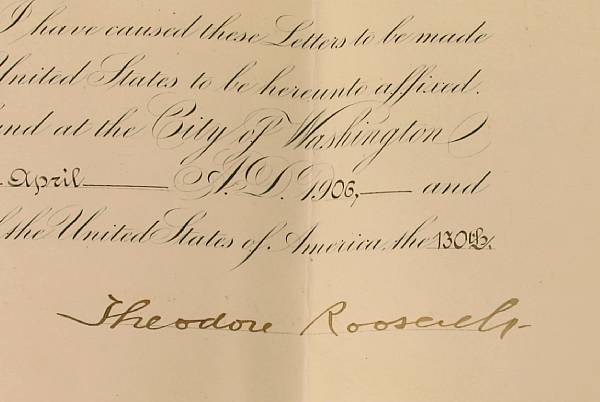 I have caused these Letters to be made
United States to be hereunto affixed.
and at the City of Washington
April A.D. 1906, and
the United States of America, the 130th.
Theodore Roosevelt